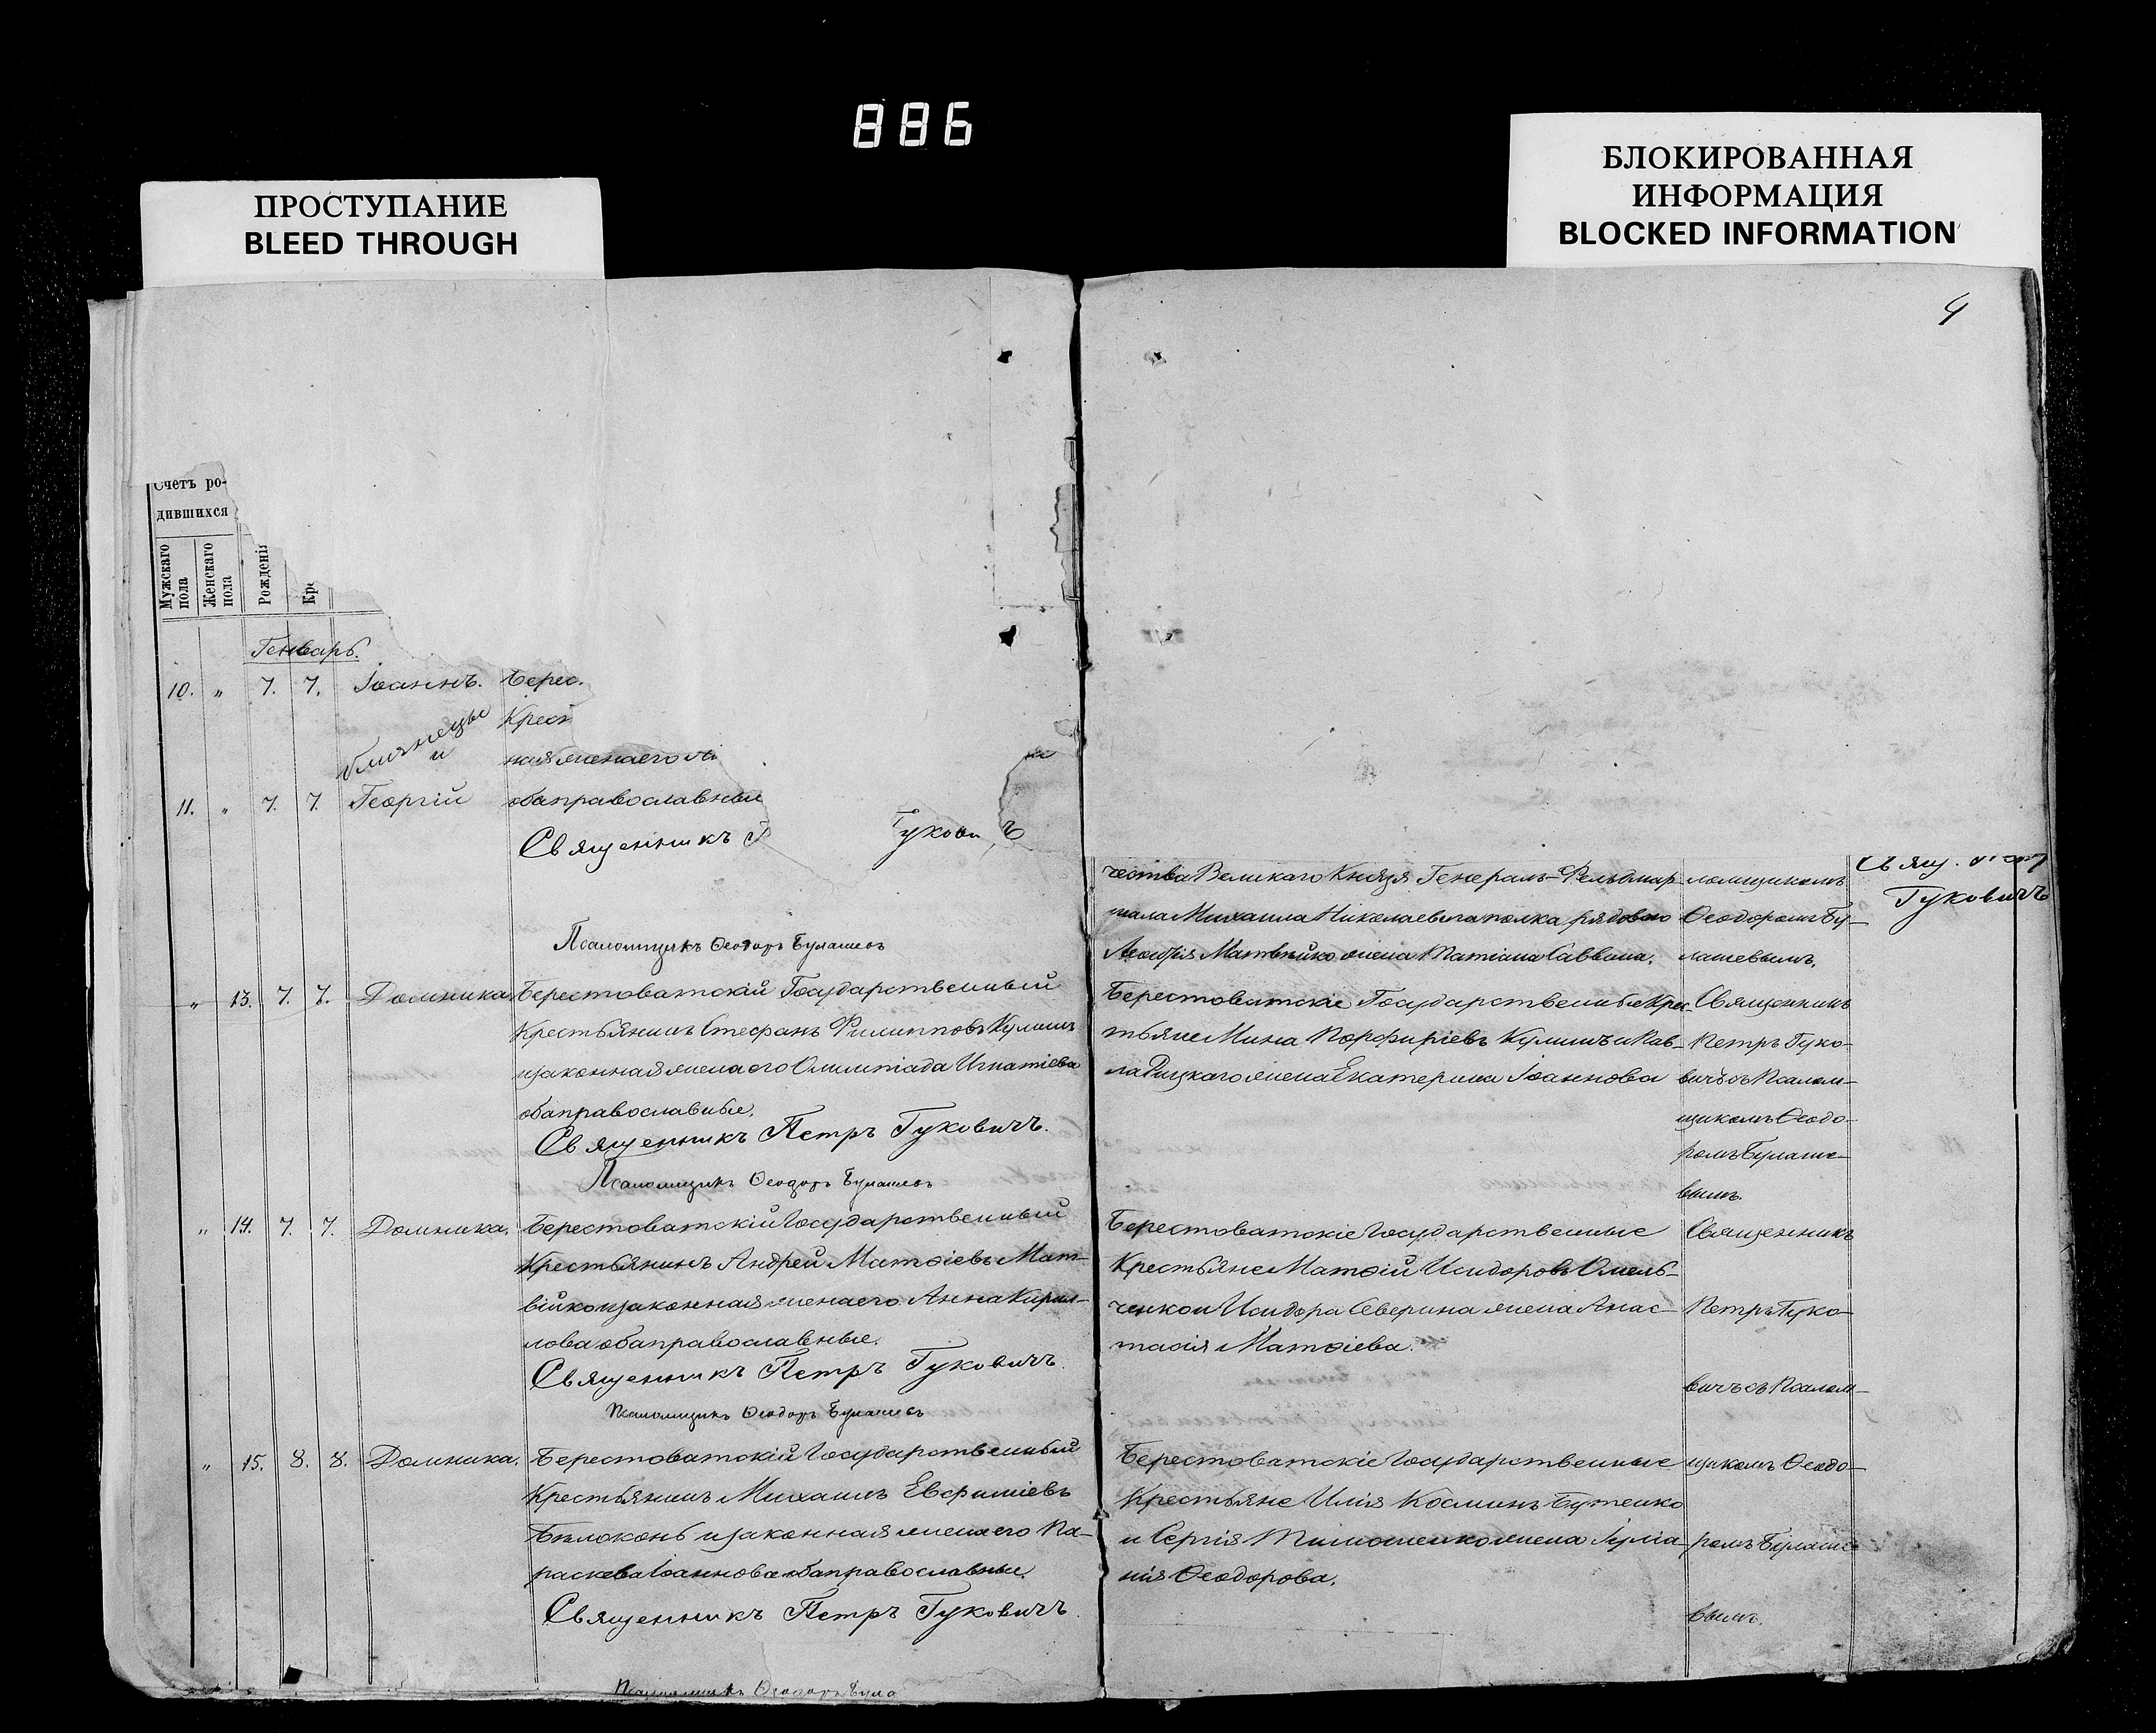 886
ПРОСТУПАНИЕ
BLEED THROUGH
БЛОКИРОВАННАЯ
ИНФОРМАЦИЯ
BLOCKED INFORMATION
Счетъ ро-
дившихся
Мужскаго пола
Женскаго пола
Рожденія
Кре
Генварь.
10. " 7. 7. Іоаннъ. Берес
Крест
близнецы
и
ная жена его
11. " 7. 7. Георгій оба православные
Священникъ Гукови ъ
Псаломщикъ Ѳеодоръ Булашевъ
" 13. 7. 7. Домника Берестоватскій Государственный
Крестьянинъ Стефанъ Филипповъ Кулишъ
и законная жена его Олимпіада Игнатіева
оба православные.
Священникъ Петръ Гуковичъ.
Псаломщикъ Ѳеодоръ Булашевъ
" 14. 7. 7. Домника. Берестоватскій Государственный
Крестьянинъ Андрей Матѳіевъ Мат-
війко и законная жена его Анна Кирил-
лова оба православные.
Священникъ Петръ Гуковичъ.
Псаломщикъ Ѳеодоръ Булашевъ
" 15. 8. 8. Домника. Берестоватскій Государственный
Крестьянинъ Михаилъ Евфиміевъ
Бѣлоконь и законная жена его Па-
раскева Іоаннова оба православные.
Священникъ Петръ Гуковичъ.
Псаломщикъ Ѳеодоръ Була
4
чества Великаго Князя Генералъ-Фельдмар-
шала Михаила Николаевича полка рядового
Матвѣйко жена Татіана Саввина.
ломщикомъ
Ѳеодоромъ Бу-
лашевымъ.
Свящ. Петръ
Гуковичъ
Берестоватскіе Государственные Крес-
тьяне Мина Порфиріевъ Кулишъ и Пав-
ла Рицкаго жена Екатерина Іоаннова
Священникъ
Петръ Гуко-
вичъ съ Псалом-
щикомъ Ѳеодо-
ромъ Булаше-
вымъ.
Берестоватскіе Государственные
Крестьяне Матѳій Исидоровъ Омель-
ченко и Исидора Северина жена Анас-
тасія Матѳіева.
Священникъ
Петръ Гуко-
вичъ съ Псалом-
Берестоватскіе Государственные
Крестьяне Илія Косминъ Бутенко
и Сергія Тимошенко жена Іуліа-
нія Ѳеодорова.
щикомъ Ѳеодо-
ромъ Булаше-
вымъ.